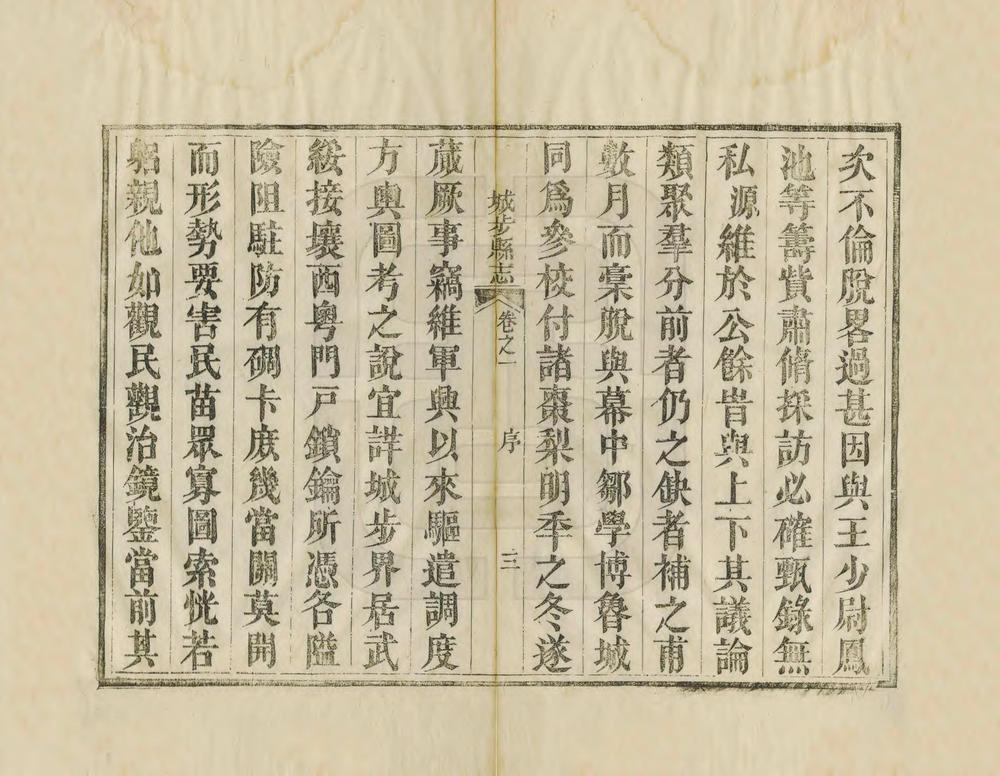 次不倫脫畧過甚因與王少尉鳳
池等籌貲肅脩採訪必確甄錄無
私源維於公餘耆與上下其議論
類聚羣分前者仍之缺者補之甫
數月而稾脫與幕中鄒學博魯城
同爲叅校付諸棗梨明秊之冬遂
城步縣志 卷之一 序 三
蕆厥事竊維軍興以來驅遣調度
方輿圖考之說宜詳城步界居武
綏接壤西粵門戸鎖鑰所憑各隘
險阻駐防有碉卡庶幾當關莫開
而形勢要害民苗眾寡圖索恍若
躬親他如觀民觀治鏡鑒當前其